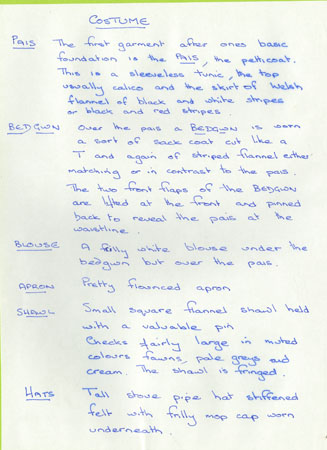 COSTUME
PAIS The first garment after ones basic
foundation is the PAIS, the petticoat.
This is a sleeveless tunic, the top
usually calico and the skirt of Welsh
flannel of black and white stripes
or black and red stripes.
BEDGWN Over the pais a BEDGWN is worn
a sort of sack coat cut like a
T and again of striped flannel either
matching or in contrast to the pais.
The two front flaps of the BEDGWN
are lifted at the front and pinned
back to reveal the pais at the
waistline.
BLOUSE A frilly white blouse under the
bedgwn but over the pais.
APRON Pretty flounced apron
SHAWL Small square flannel shawl held
with a valuable pin
Checks fairly large in muted
colours fawns, pale greys and
cream. The shawl is fringed.
HATS Tall stove pipe hat stiffened
felt with frilly mop cap worn
underneath.